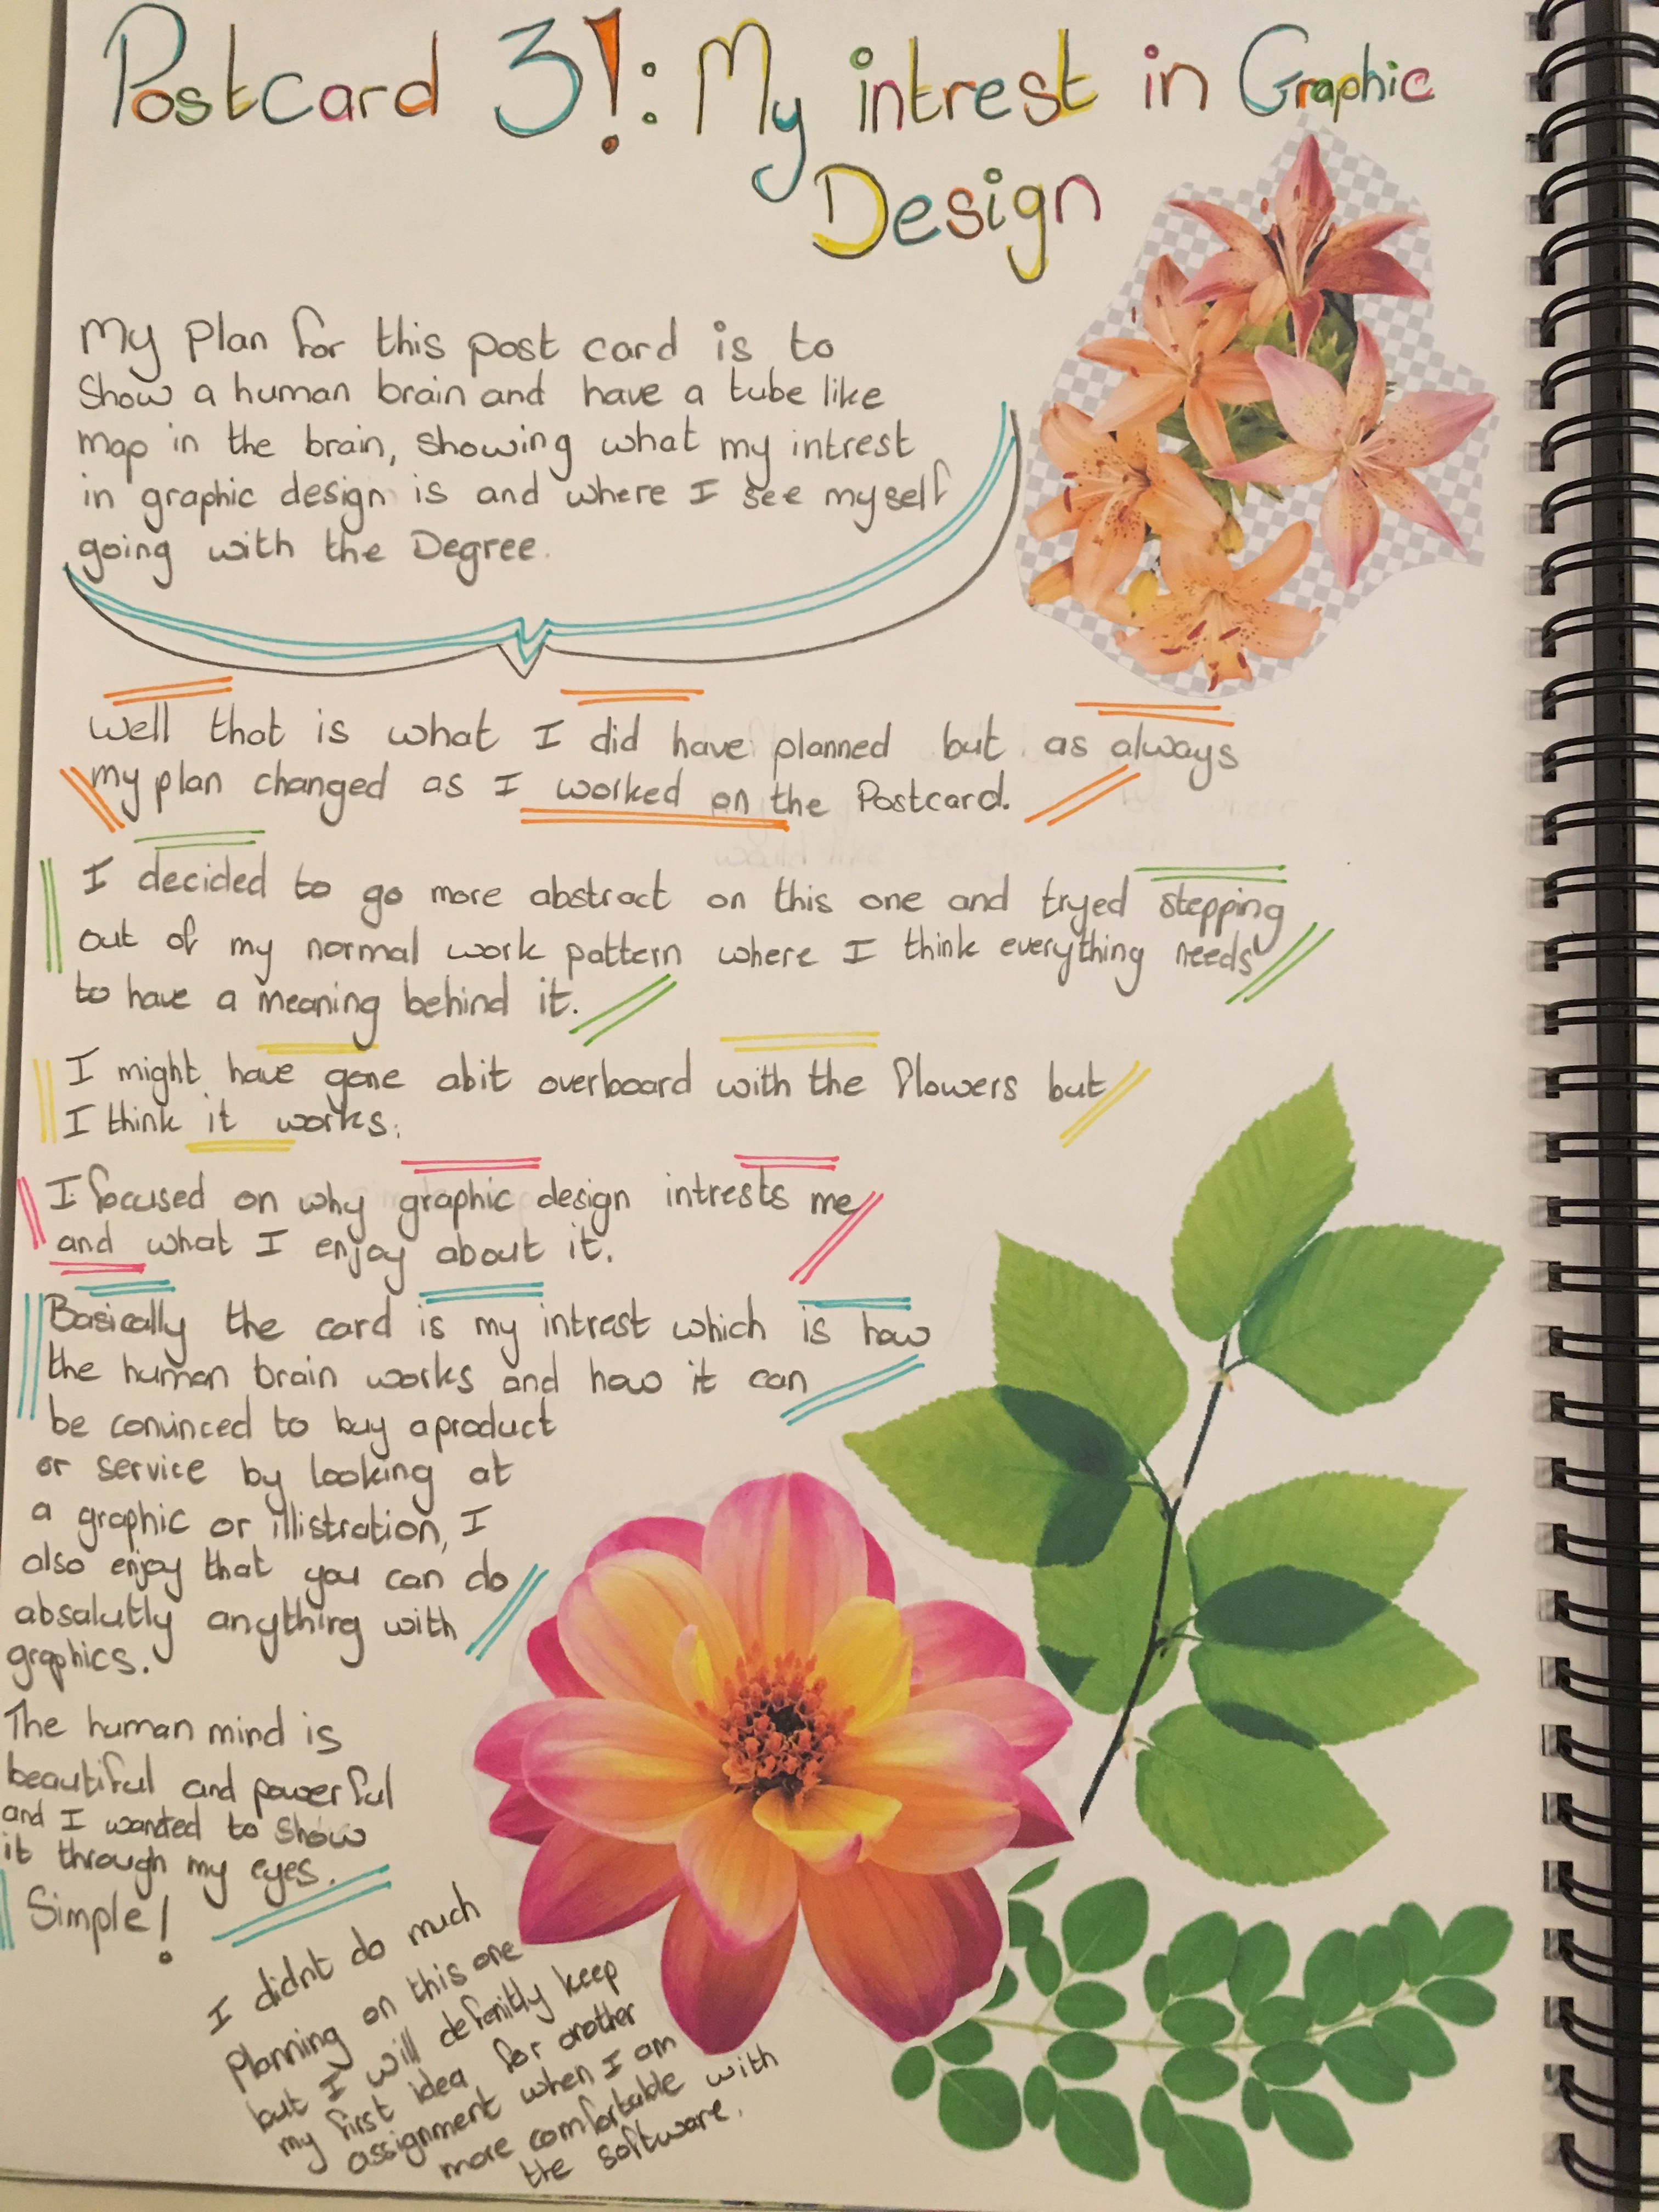 Postcard 3!: My intrest in Graphic
Design
My Plan for this post card is to
Show a human brain and have a tube like
map in the brain, showing what my intrest
in graphic design is and where I see myself
going with the Degree.
Well that is what I did have planned but as always
my plan changed as I worked on the Postcard.
I decided to go more abstract on this one and tryed stepping
out of my normal work pattern where I think everything needs
to have a meaning behind it.
I might have gone abit overboard with the flowers but
I think it works.
I focused on why graphic design intrests me
and what I enjoy about it.
Basically the card is my intrest which is how
the human brain works and how it can
be convinced to buy a product
or service by looking at
a graphic or illistration, I
also enjoy that you can do
absalutly anything with
graphics.
The human mind is
beautiful and powerful
and I wanted to show
it through my eyes.
Simple!
I didnt do much
Planning on this one
but I will defenitly keep
my first idea for another
assignment when I am
more comfortable with
the software.